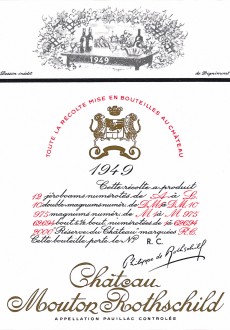 1949
Dessin inédit de Dignimont
TOUTE LA RÉCOLTE MISE EN BOUTEILLES AU CHÂTEAU
1949
Cette récolte a produit
12 jéroboams numérotés de A à L
10 double magnums numér. de DM à DM 10
975 magnums numér. de M à M 975
Réserve du Château marquées R.C.
Cette bouteille porte le Nº R. C.
Philippe de Rothschild
Château
Mouton Rothschild
APPELLATION PAUILLAC CONTRÔLÉE